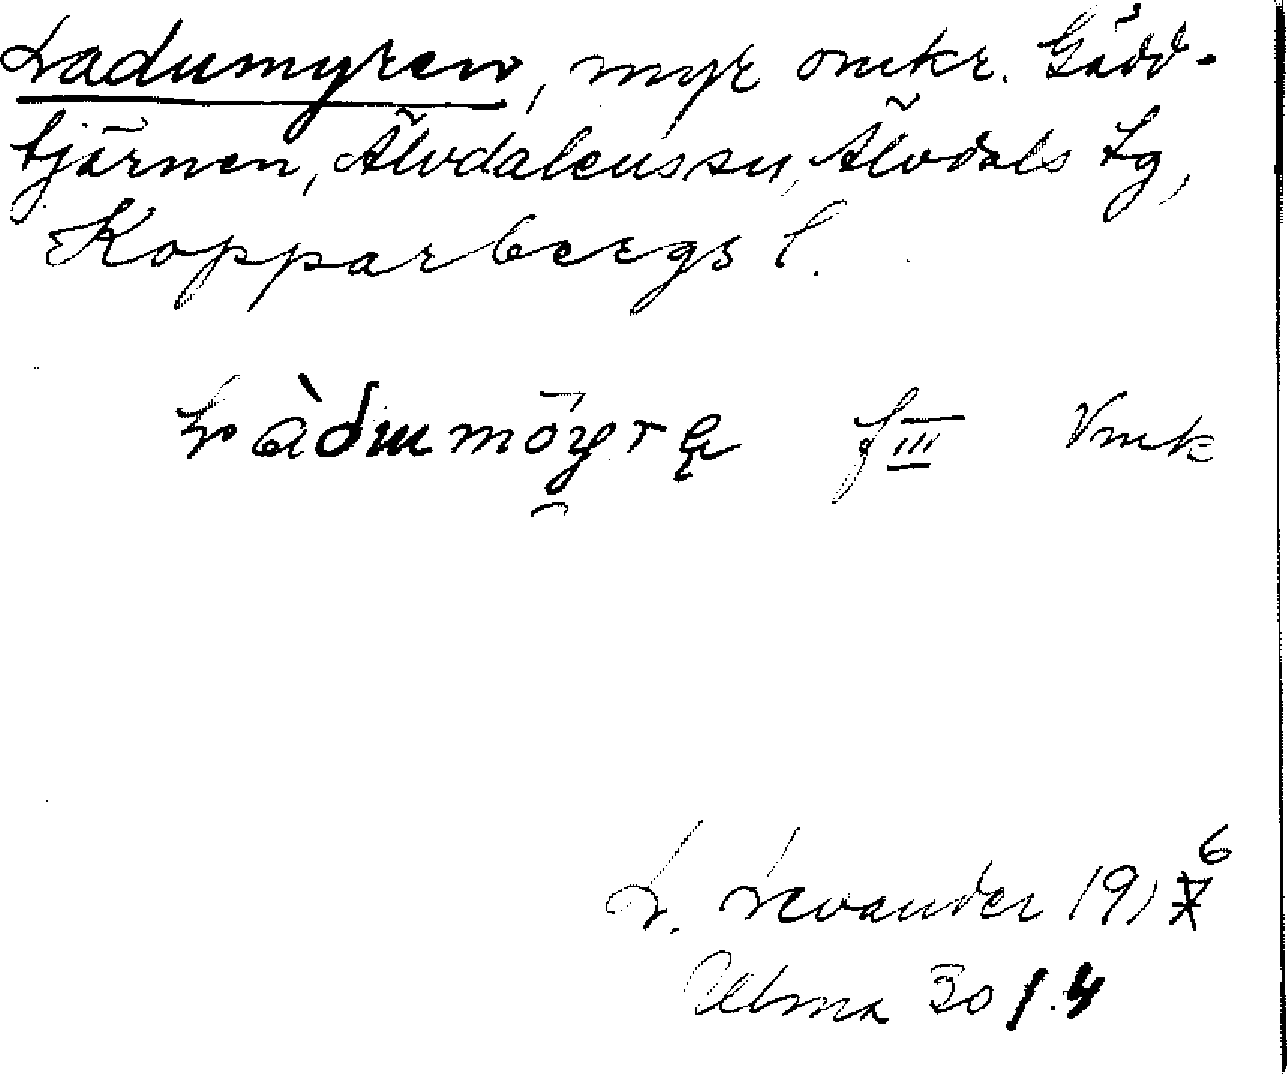 Ladumyren, myr omkr. Gädd-
tjärnen, Älvdalens sn, Älvdals tg,
Kopparbergs l.
f III Vmk
L. Levander 1916
Ulma 301.4